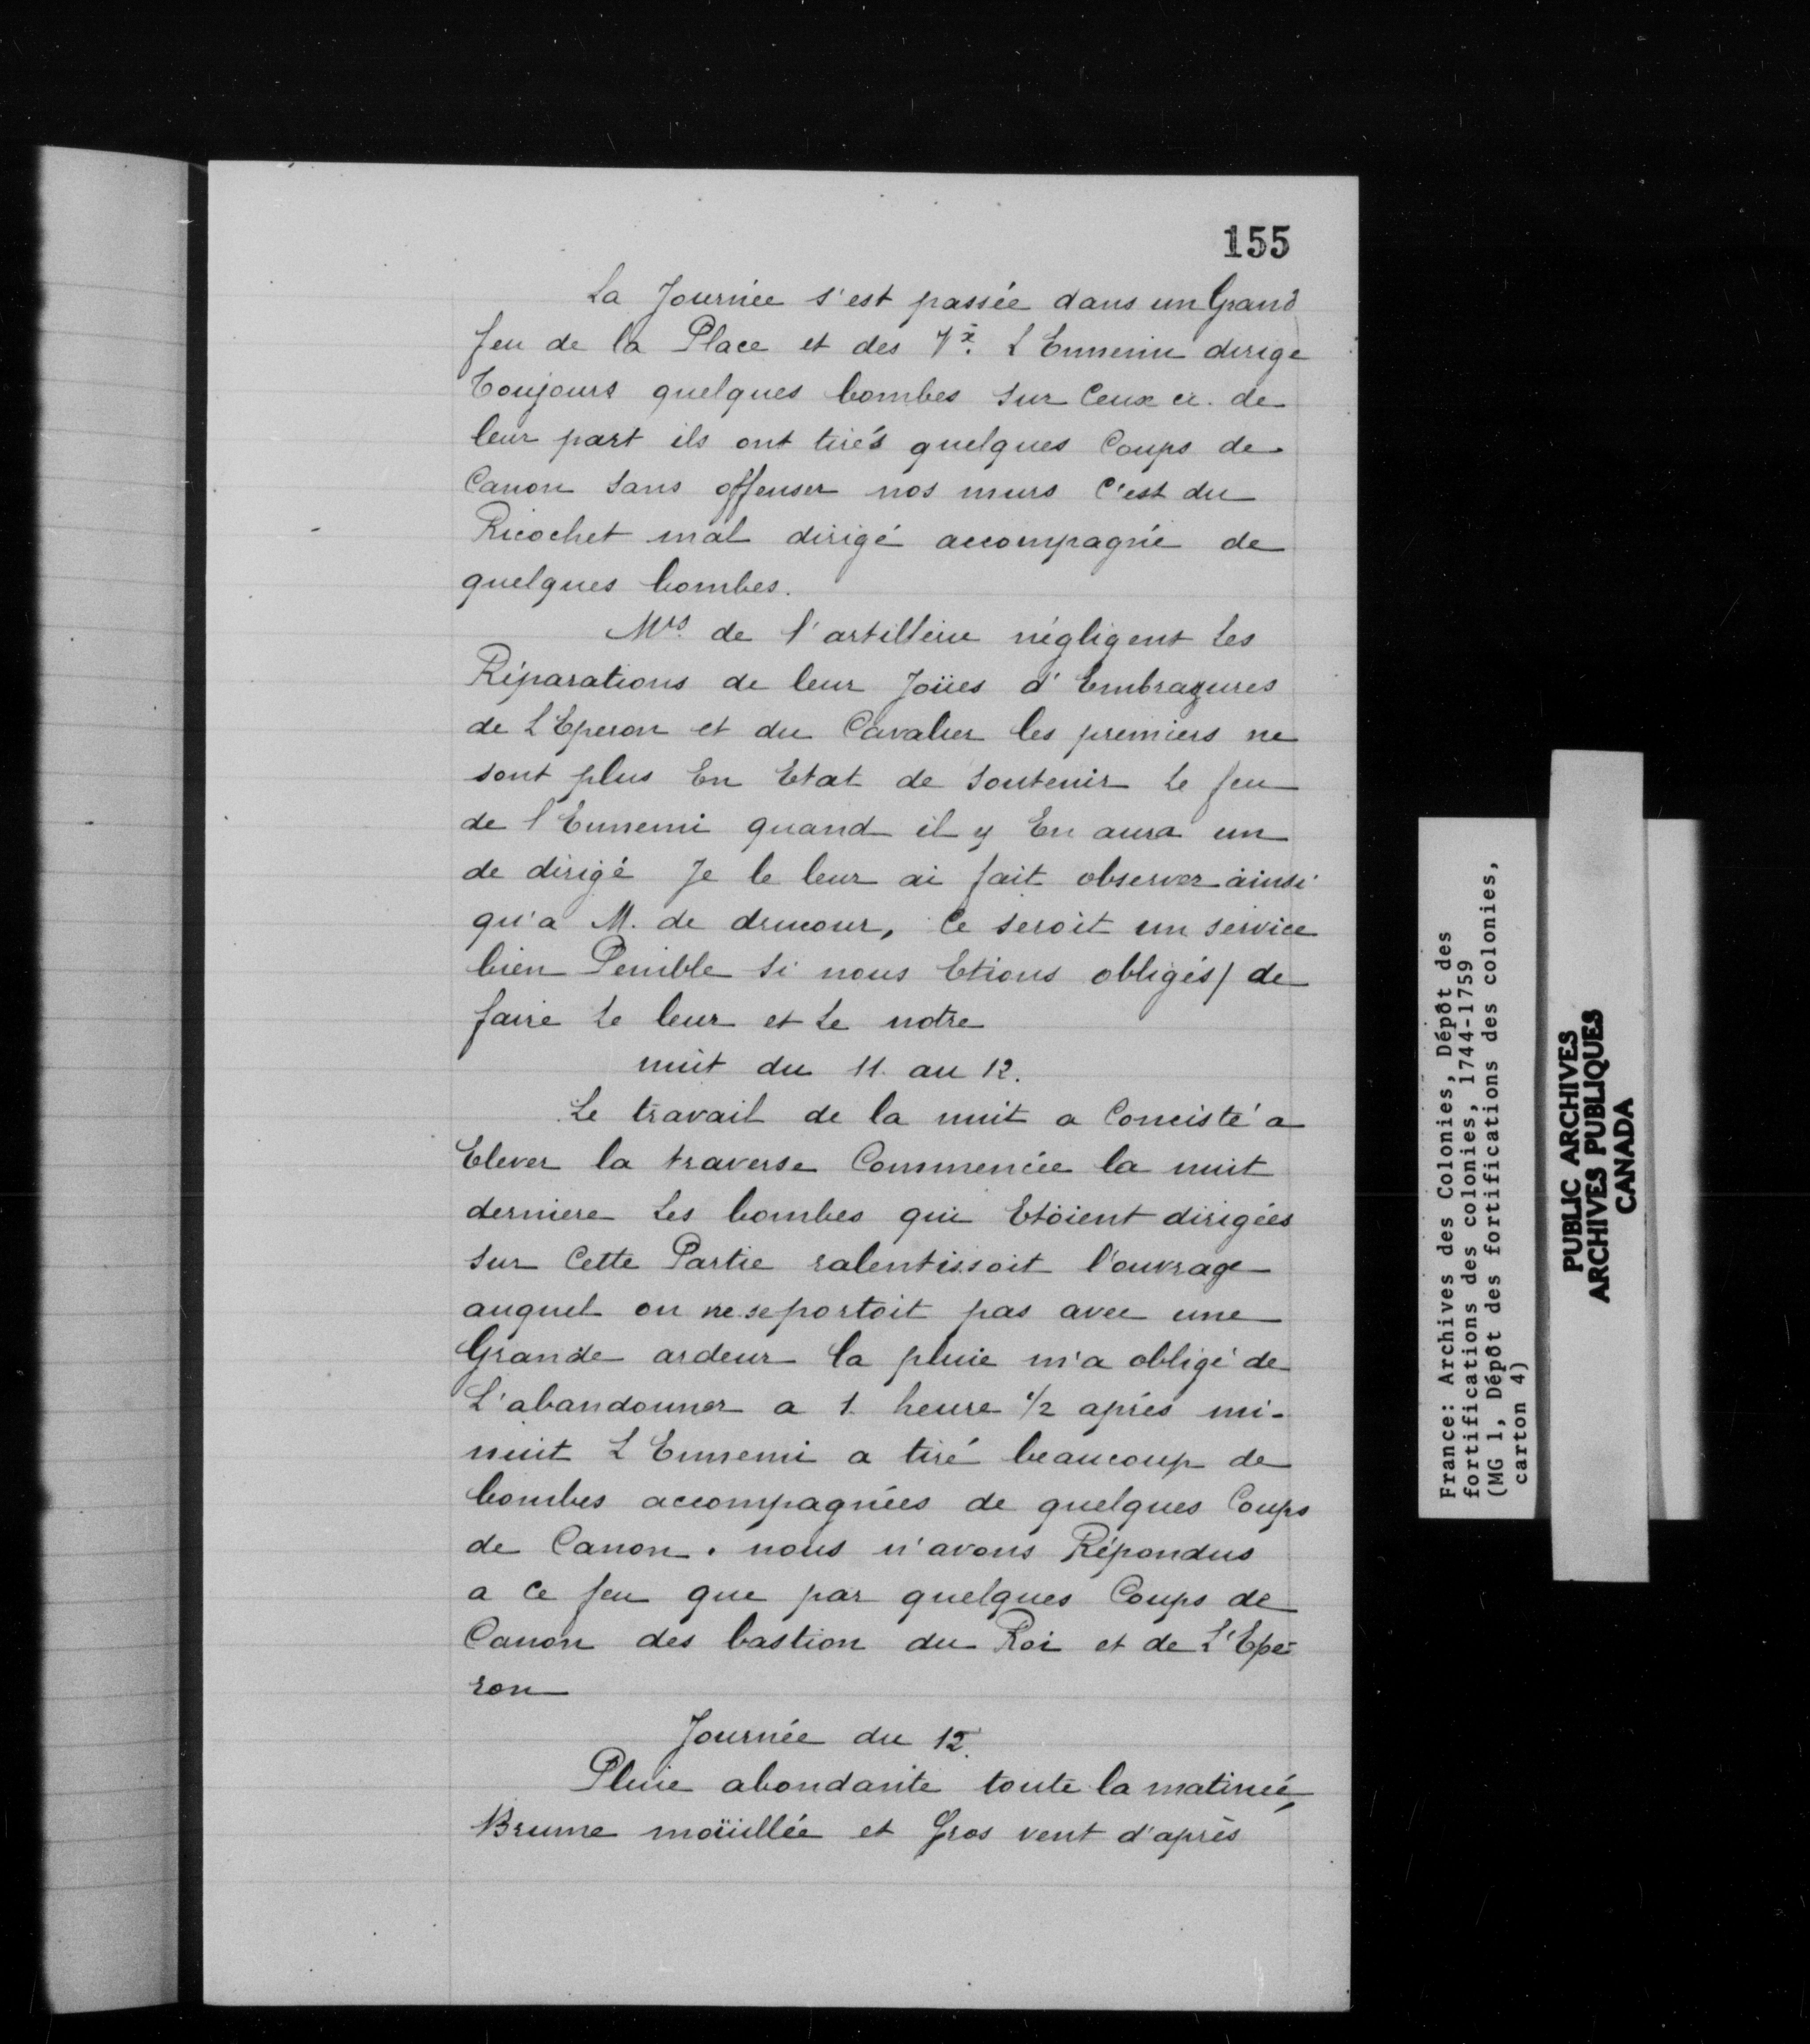 155
La Journée s'est passée dans un Grand
feu de la Place et des Vx. L'Ennemie dirige
toujours quelques bombes sur Ceux ci. de
leur part ils ont tirés quelques Coups de
Canon sans offenser nos murs C'est du
Ricochet mal dirigé accompagné de
quelques bombes.
Mrs. de l'artillerie négligent les
Réparations de leur Joües d'Embrazures
de L'Eperon et du Cavalier les premiers ne
sont plus En Etat de soutenir le feu
de l'Ennemi quand il y En aura un
de dirigé Je le leur ai fait observer ainsi
qu'a M. de drucour, Ce seroit un service
bien Penible si nous Etions obligés/ de
faire le leur et le notre
nuit du 11. au 12.
Le travail de la nuit a Concisté a
Elever la traverse Commencée la nuit
derniere les bombes qui Etoient dirigées
sur Cette Partie ralentissoit l'ouvrage
auquel on ne se portoit pas avec une
Grande ardeur la pluie m'a obligé de
L'abandonner a 1. heure 1/2 après mi-
nuit L'Ennemi a tiré beaucoup de
bombes accompagnées de quelques Coups
de Canon. nous n'avons Répondus
a Ce feu que par quelques Coups de
Canon des bastion du Roi et de L'Epe-
ron
Journée du 12.
Pluie abondante toute la matinée,
Brume moüillée et Gros vent d'après
France: Archives des Colonies, Dépôt des
fortifications des colonies, 1744-1759
(MG 1, Dépôt des fortifications des colonies,
carton 4)
PUBLIC ARCHIVES
ARCHIVES PUBLIQUES
CANADA